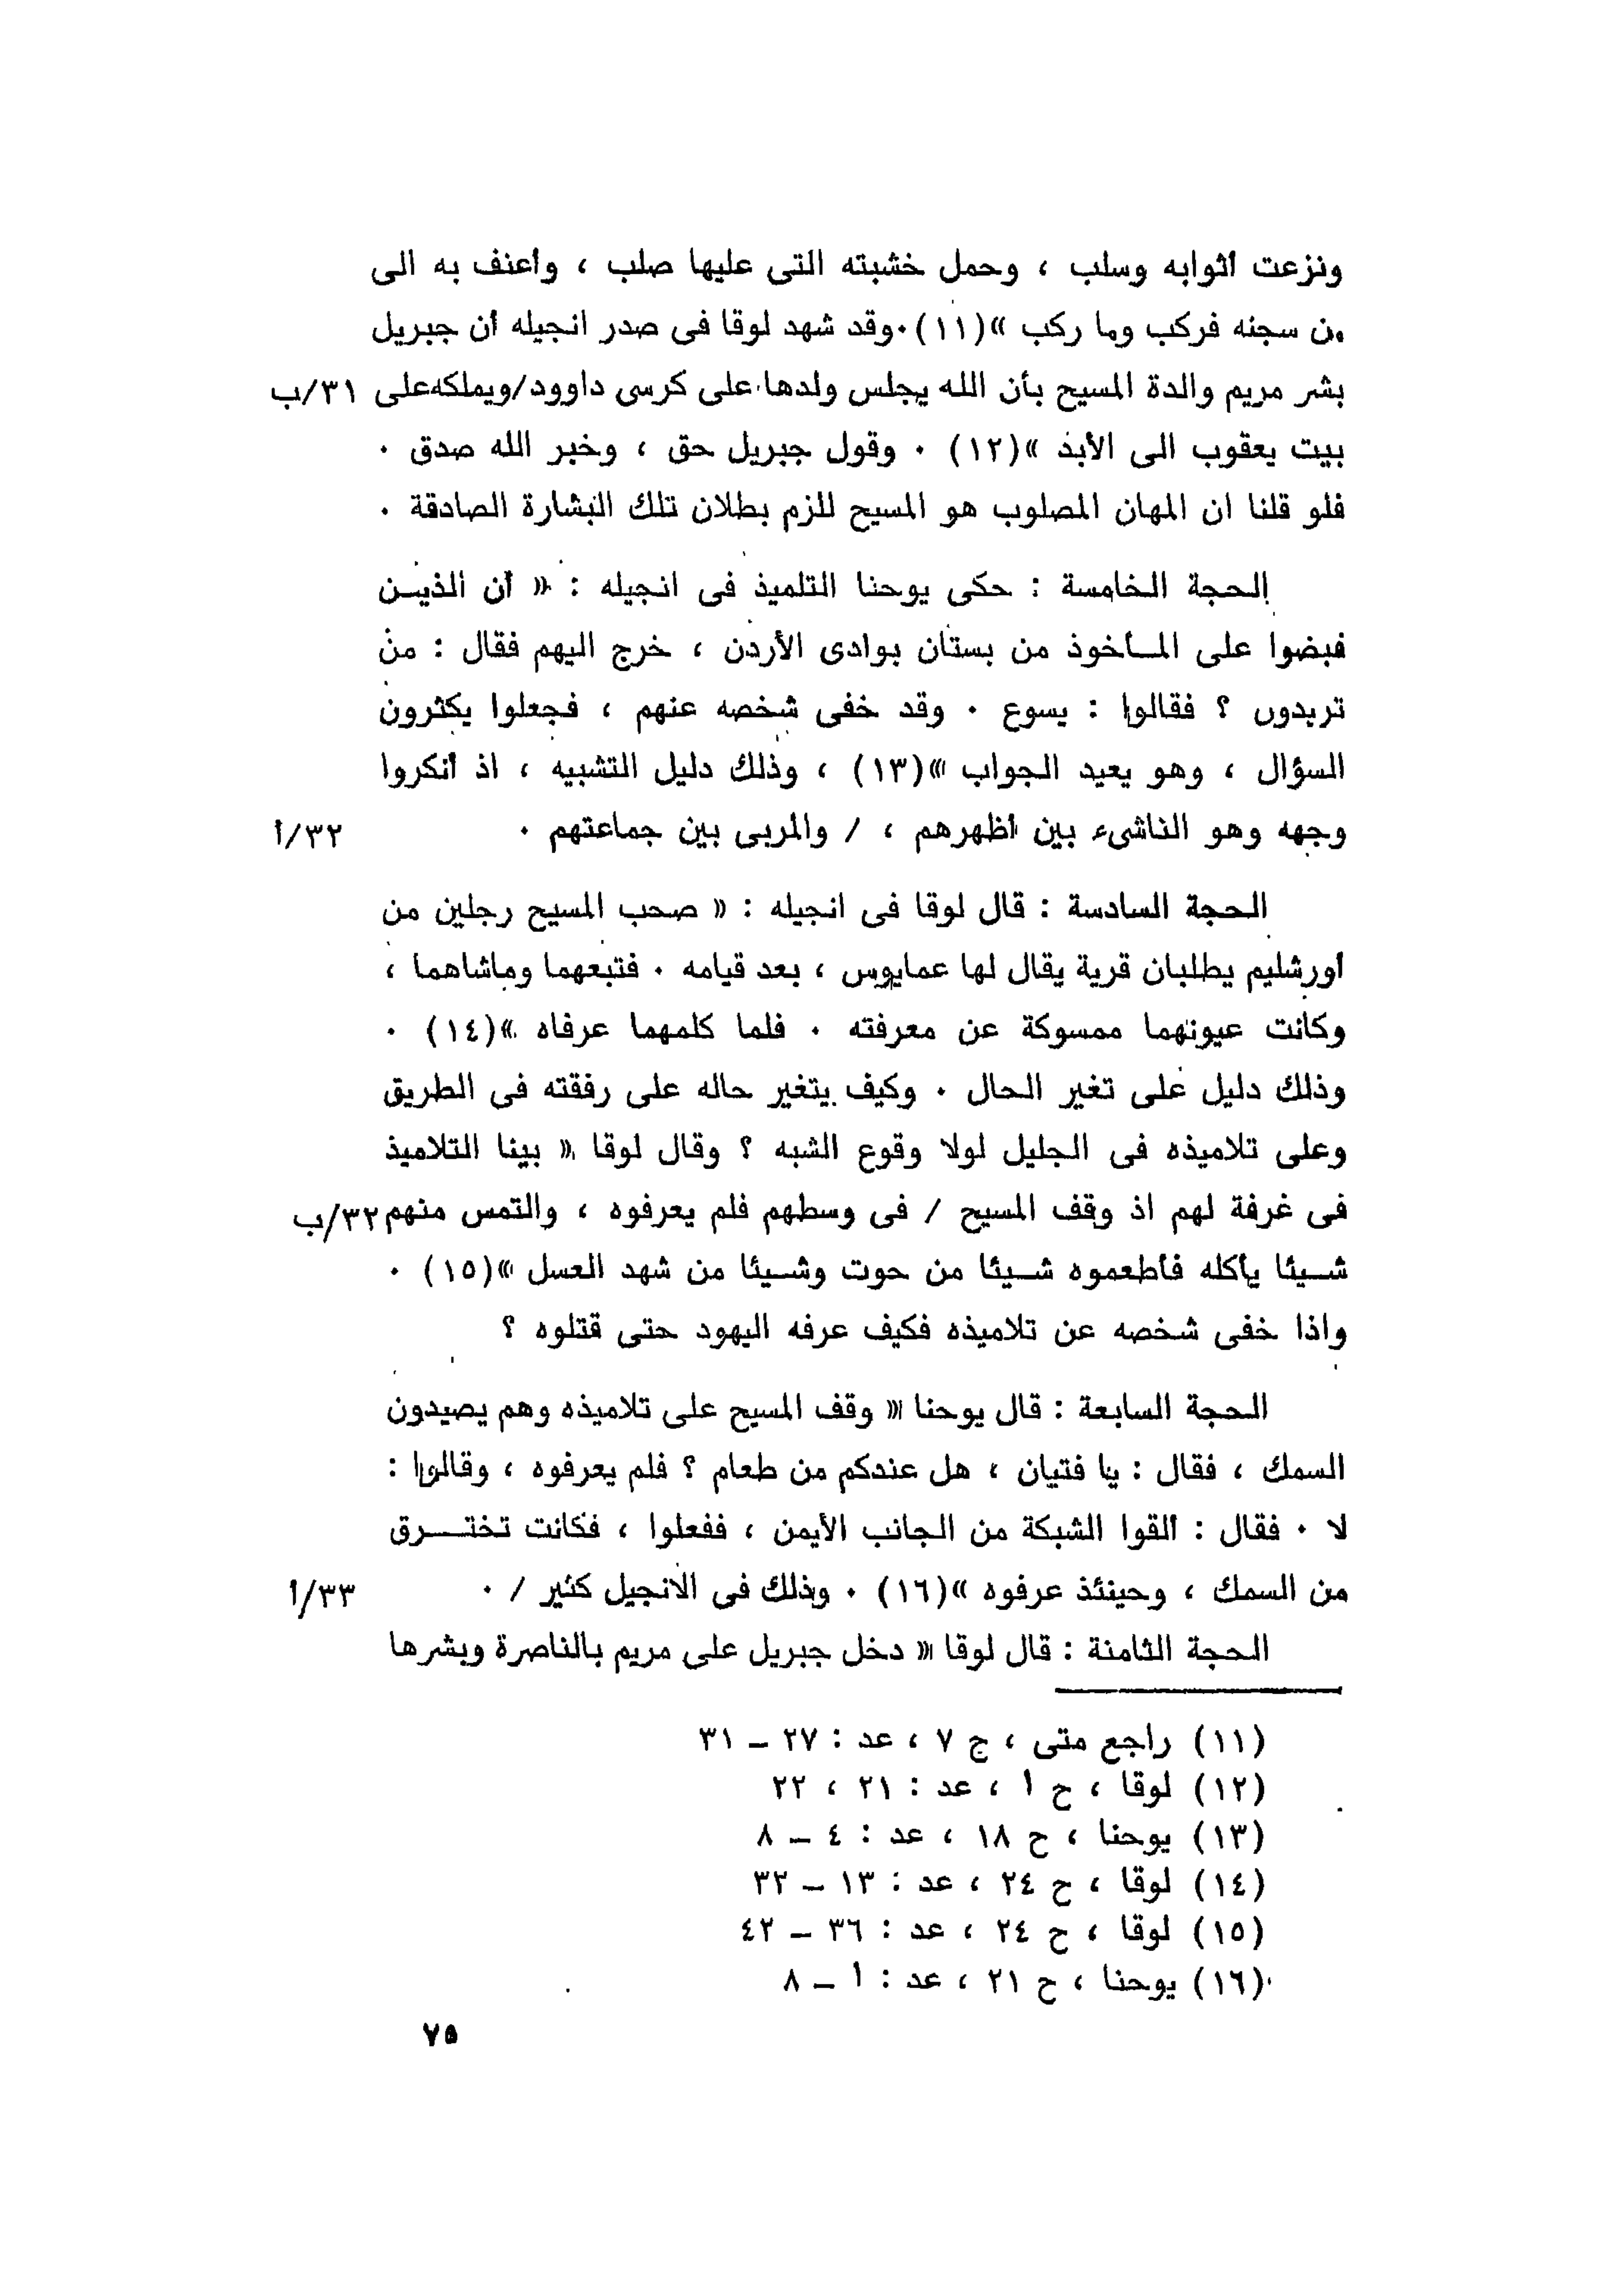 ونزعت أثوابه وسلب ، وحمل خشبته التى عليها صلب ، وأعنف به الى
من سجنه فركب وما ركب »(١١)٠وقد شهد لوقا فى صدر انجيله أن جبريل
بشر مريم والدة المسيح بأن الله يجلس ولدها على كرسى داوود/ويملكه على ٣١/ب
بيت يعقوب الى الأبد »(١٢) ٠ وقول جبريل حق ، وخبر الله صدق ٠
فلو قلنا ان المهان المصلوب هو المسيح للزم بطلان تلك البشارة الصادقة ٠
الحجة الخامسة : حكى يوحنا التلميذ فى انجيله : « أن الذيـن
قبضوا على المـأخوذ من بستان بوادى الأردن ، خرج اليهم فقال : من
تريدون ؟ فقالوا : يسوع ٠ وقد خفى شخصه عنهم ، فجعلوا يكثرون
السؤال ، وهو يعيد الجواب »(١٣) ، وذلك دليل التشبيه ، اذ أنكروا
وجهه وهو الناشىء بين أظهرهم ، / والمربى بين جماعتهم ٠ ٣٢/أ
الحجة السادسة : قال لوقا فى انجيله : « صحب المسيح رجلين من
أورشليم يطلبان قرية يقال لها عمايوس ، بعد قيامه ٠ فتبعهما وماشاهما ،
وكانت عيونهما ممسوكة عن معرفته ٠ فلما كلمهما عرفاه »(١٤) ٠
وذلك دليل على تغير الحال ٠ وكيف يتغير حاله على رفقته فى الطريق
وعلى تلاميذه فى الجليل لولا وقوع الشبه ؟ وقال لوقا « بينا التلاميذ
فى غرفة لهم اذ وقف المسيح / فى وسطهم فلم يعرفوه ، والتمس منهم ٣٢/ب
شـيئا يأكله فأطعموه شـيئا من حوت وشـيئا من شهد العسل »(١٥) ٠
واذا خفى شخصه عن تلاميذه فكيف عرفه اليهود حتى قتلوه ؟
الحجة السابعة : قال يوحنا « وقف المسيح على تلاميذه وهم يصيدون
السمك ، فقال : يا فتيان ، هل عندكم من طعام ؟ فلم يعرفوه ، وقالوا :
لا ٠ فقال : ألقوا الشبكة من الجانب الأيمن ، ففعلوا ، فكانت تختـــرق
من السمك ، وحينئذ عرفوه »(١٦) ٠ وذلك فى الانجيل كثير / ٠ ٣٣/أ
الحجة الثامنة : قال لوقا « دخل جبريل على مريم بالناصرة وبشرها
(١١) راجع متى ، ج ٧ ، عد : ٢٧ ــ ٣١
(١٢) لوقا ، ح ١ ، عد : ٢١ ، ٢٢
(١٣) يوحنا ، ح ١٨ ، عد : ٤ ــ ٨
(١٤) لوقا ، ح ٢٤ ، عد : ١٣ ــ ٣٢
(١٥) لوقا ، ح ٢٤ ، عد : ٣٦ ــ ٤٢
(١٦) يوحنا ، ح ٢١ ، عد : ١ ــ ٨
٧٥